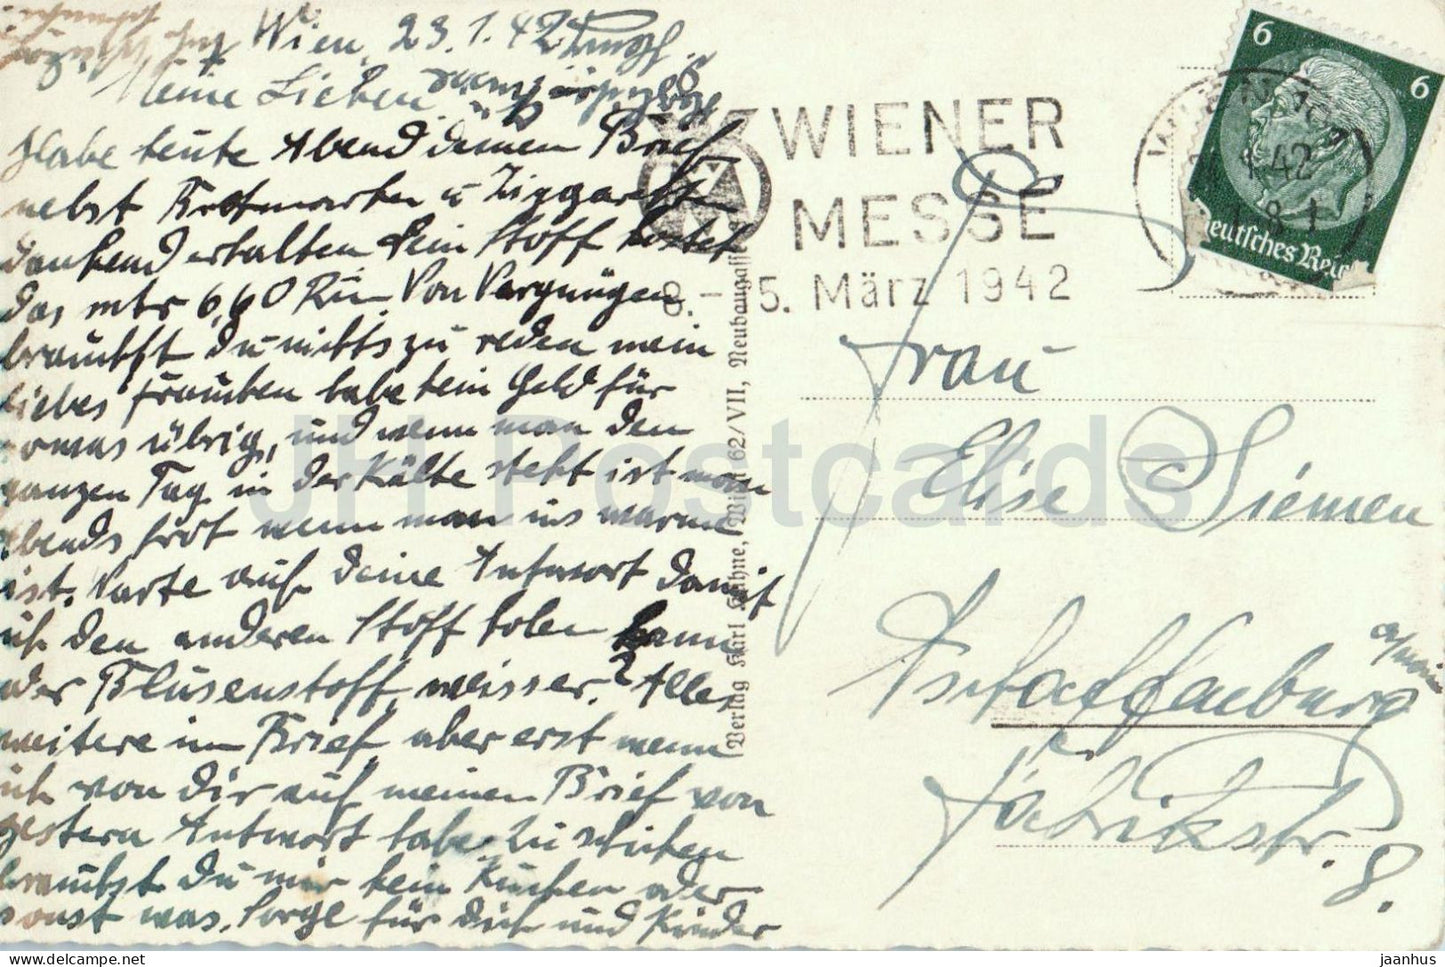 Wien, 23.1.42
Meine Lieben
Habe heute Abend deinen Brief
nebst Brotmarken u Ziggarett
dankend erhalten dein Stoff kostet
das mtr 6,60 RM Von Vergnügen
brauchst du nichts zu reden mein
liebes Frauchen habe kein Geld für
sowas übrig, und wenn man den
ganzen Tag in der Kälte steht ist man
Abends froh wenn man ins warme
ist. Warte auf deine Antwort damit
ich den anderen Stoff holen kann
oder Blusenstoff weisser? Alles
weitere im Brief, aber erst wenn
ich von dir auf meinen Brief von
gestern Antwort habe. Zu schicken
brauchst du mir kein Kuchen oder
sonst was. Sorge für dich und Kinder
Verlag Karl Kühne, Wien 62/VII, Neubaugasse
WIENER
MESSE
8. – 15. März 1942
6 6
Deutsches Reich
WIEN 101
1.42
Frau
Elise Siemen
Aschaffenburg
a/Main
Fabrikstr. 8.
JH Postcards
jaanhus